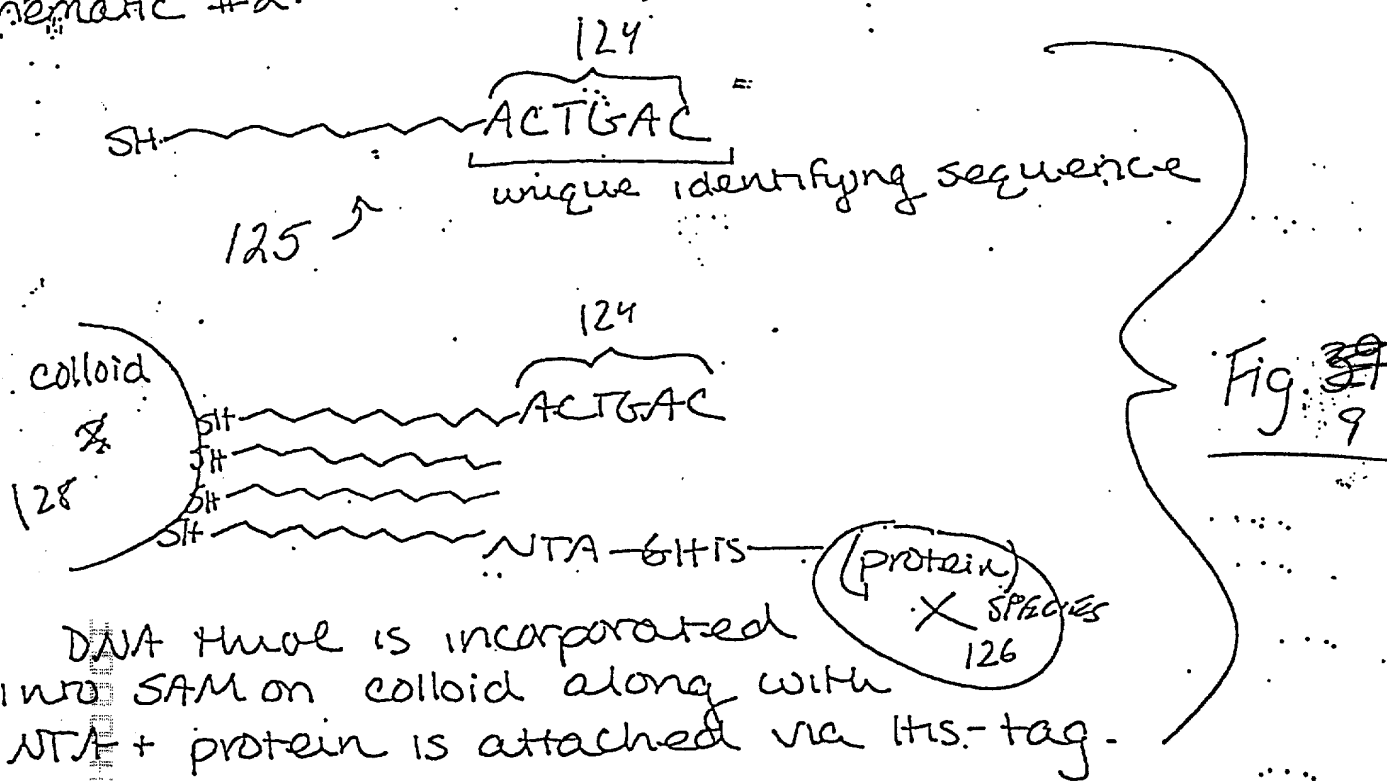 #2.
124
SH ACTGAC =
unique identifying sequence
125
124
colloid
SH ACTGAC
SH
128
SH
SH NTA-6His-(protein)
X SPECIES
126
Fig. 39
9
DNA thiol is incorporated
into SAM on colloid along with
NTA + protein is attached via His-tag.